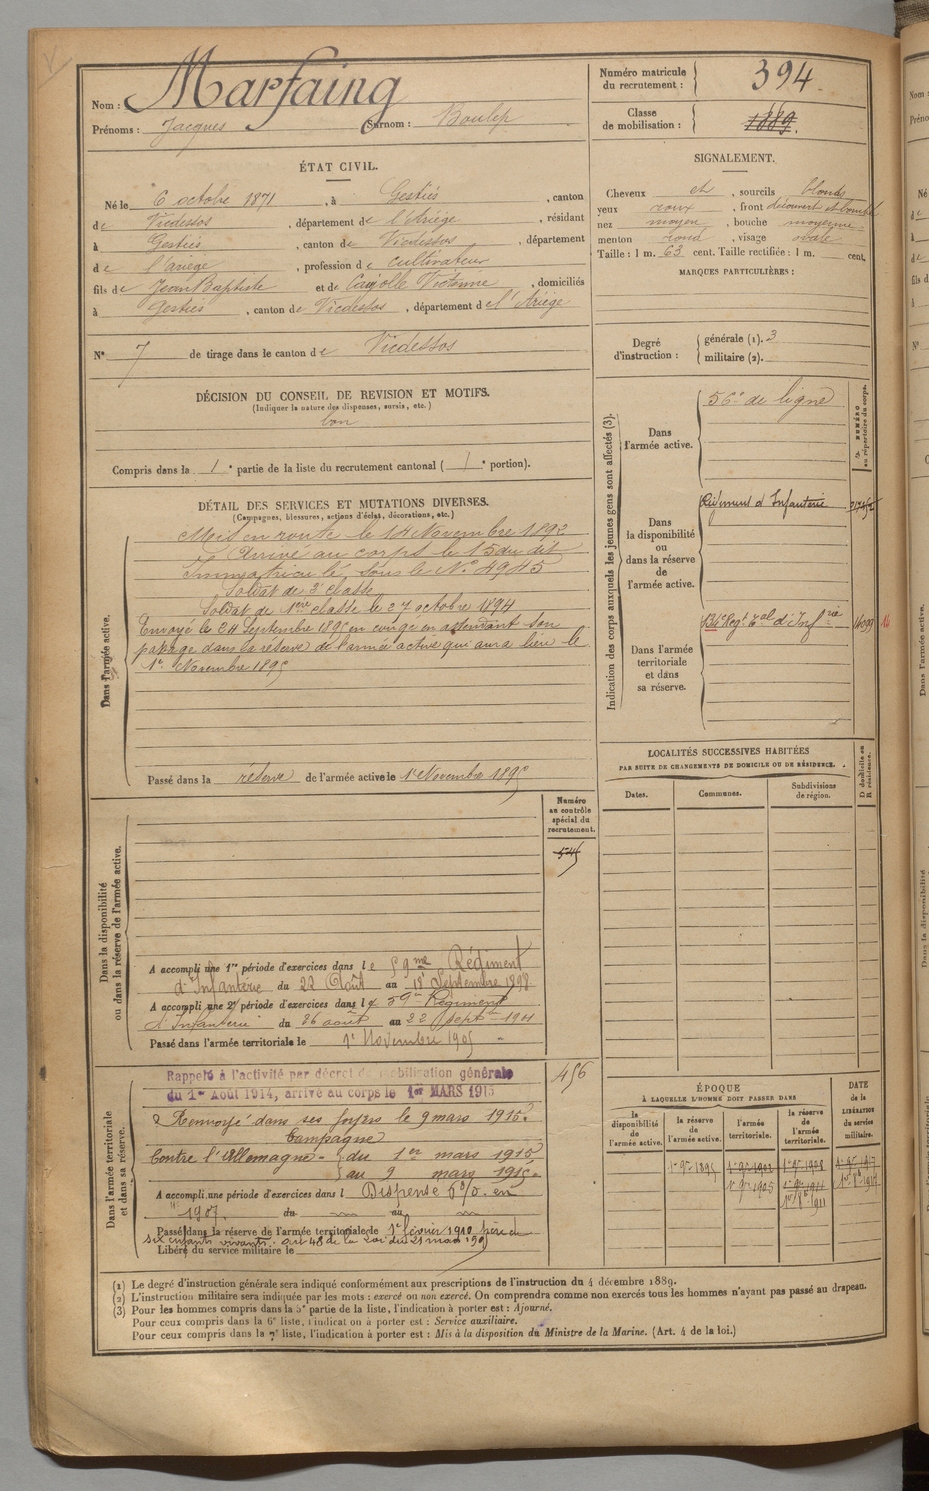 Nom : Marfaing
Prénoms : Jacques Surnom : Boulep
Numéro matricule du recrutement : 394
Classe de mobilisation : 1889.
ÉTAT CIVIL.
Né le 6 octobre 1871, à Gestiès, canton
de Vicdessos, département de l'Ariège, résidant
à Gestiès, canton de Vicdessos, département
de l'ariège, profession de cultivateur
fils de Jean Baptiste et de Victorine, domiciliés
à Gestiès, canton de Vicdessos, département de l'Ariège
N° 7 de tirage dans le canton de Vicdessos
SIGNALEMENT.
Cheveux et, sourcils blonds
yeux roux, front découvert et bombé
nez moyen, bouche moyenne
menton rond, visage ovale
Taille : 1 m. 63 cent. Taille rectifiée : 1 m. cent.
MARQUES PARTICULIÈRES :
Degré d'instruction : générale (1). 3
militaire (2).
DÉCISION DU CONSEIL DE REVISION ET MOTIFS.
(Indiquer la nature des dispenses, sursis, etc.)
bon
Compris dans la 1e partie de la liste du recrutement cantonal ( 1e portion).
DÉTAIL DES SERVICES ET MUTATIONS DIVERSES.
(Campagnes, blessures, actions d'éclat, décorations, etc.)
Dans l'armée active.
Mis en route le 14 Novembre 1892
Arrivé au corps le 15 du dit
Immatriculé sous le N° 4945
Soldat de 2e classe
Soldat de 1ere classe le 27 octobre 1894
Envoyé le 24 Septembre 1895 en congé en attendant son
passage dans la réserve de l'armée active qui aura lieu le
1er Novembre 1895
Passé dans la réserve de l'armée active le 1er Novembre 1895
Indication des corps auxquels les jeunes gens sont affectés (3).
NUMÉRO au répertoire du corps.
Dans l'armée active.
56e de ligne
Dans la disponibilité ou dans la réserve de l'armée active.
Régiment d'Infanterie
Dans l'armée territoriale et dans sa réserve.
134 Regt Tal d'Infrie
LOCALITÉS SUCCESSIVES HABITÉES
PAR SUITE DE CHANGEMENTS DE DOMICILE OU DE RÉSIDENCE.
Dates.
Communes.
Subdivisions de région.
D domicile ou R résidence.
Dans la disponibilité ou dans la réserve de l'armée active.
Numéro au contrôle spécial du recrutement.
545
A accompli une 1re période d'exercices dans le 59me Régiment
d'Infanterie du 22 Août au 18 Septembre 1898
A accompli une 2e période d'exercices dans le 59e Régiment
d'Infanterie du 26 août au 22 Septre 1901
Passé dans l'armée territoriale le 1er Novembre 1905
Dans l'armée territoriale et dans sa réserve.
456
Rappelé à l'activité par décret de mobilisation générale
du 1er Août 1914, arrivé au corps le 1er MARS 1915
Renvoyé dans ses foyers le 9 mars 1915.
Campagne
Contre l'Allemagne - du 1er mars 1915
au 9 mars 1915.
A accompli une période d'exercices dans l Dispensé 6% en
1907 du au
Passé dans la réserve de l'armée territoriale le 1er février 1910 père de
six enfants vivants. art 48 de la Loi du 21 mars 1905
Libéré du service militaire le
ÉPOQUE
À LAQUELLE L'HOMME DOIT PASSER DANS
la disponibilité de l'armée active.
la réserve de l'armée active.
l'armée territoriale.
la réserve de l'armée territoriale.
DATE de la LIBÉRATION du service militaire.
1er 9re 1895
1er 9re 1905
(1) Le degré d'instruction générale sera indiqué conformément aux prescriptions de l'instruction du 4 décembre 1889.
(2) L'instruction militaire sera indiquée par les mots : exercé ou non exercé. On comprendra comme non exercés tous les hommes n'ayant pas passé au drapeau.
(3) Pour les hommes compris dans la 5e partie de la liste, l'indication à porter est : Ajourné.
Pour ceux compris dans la 6e liste, l'indication à porter est : Service auxiliaire.
Pour ceux compris dans la 7e liste, l'indication à porter est : Mis à la disposition du Ministre de la Marine. (Art. 4 de la loi.)